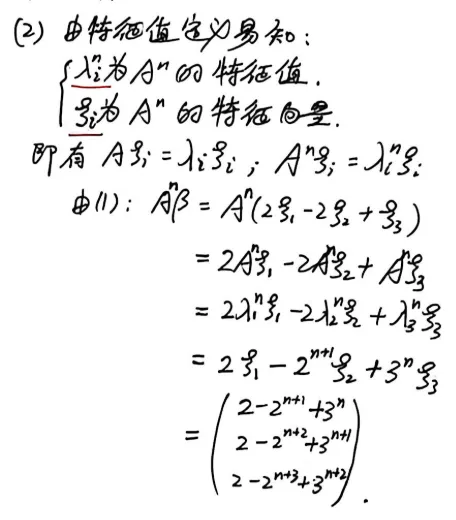 (2) 由特征值定义易知:
{ λᵢⁿ为Aⁿ的特征值.
ξᵢ为Aⁿ的特征向量.
即有 Aξᵢ = λᵢξᵢ ; Aⁿξᵢ = λᵢⁿξᵢ
由(1): Aⁿβ = Aⁿ(2ξ₁ - 2ξ₂ + ξ₃)
= 2Aⁿξ₁ - 2Aⁿξ₂ + Aⁿξ₃
= 2λ₁ⁿξ₁ - 2λ₂ⁿξ₂ + λ₃ⁿξ₃
= 2ξ₁ - 2ⁿ⁺¹ξ₂ + 3ⁿξ₃
= ( 2 - 2ⁿ⁺¹ + 3ⁿ
2 - 2ⁿ⁺² + 3ⁿ⁺¹
2 - 2ⁿ⁺³ + 3ⁿ⁺² ).